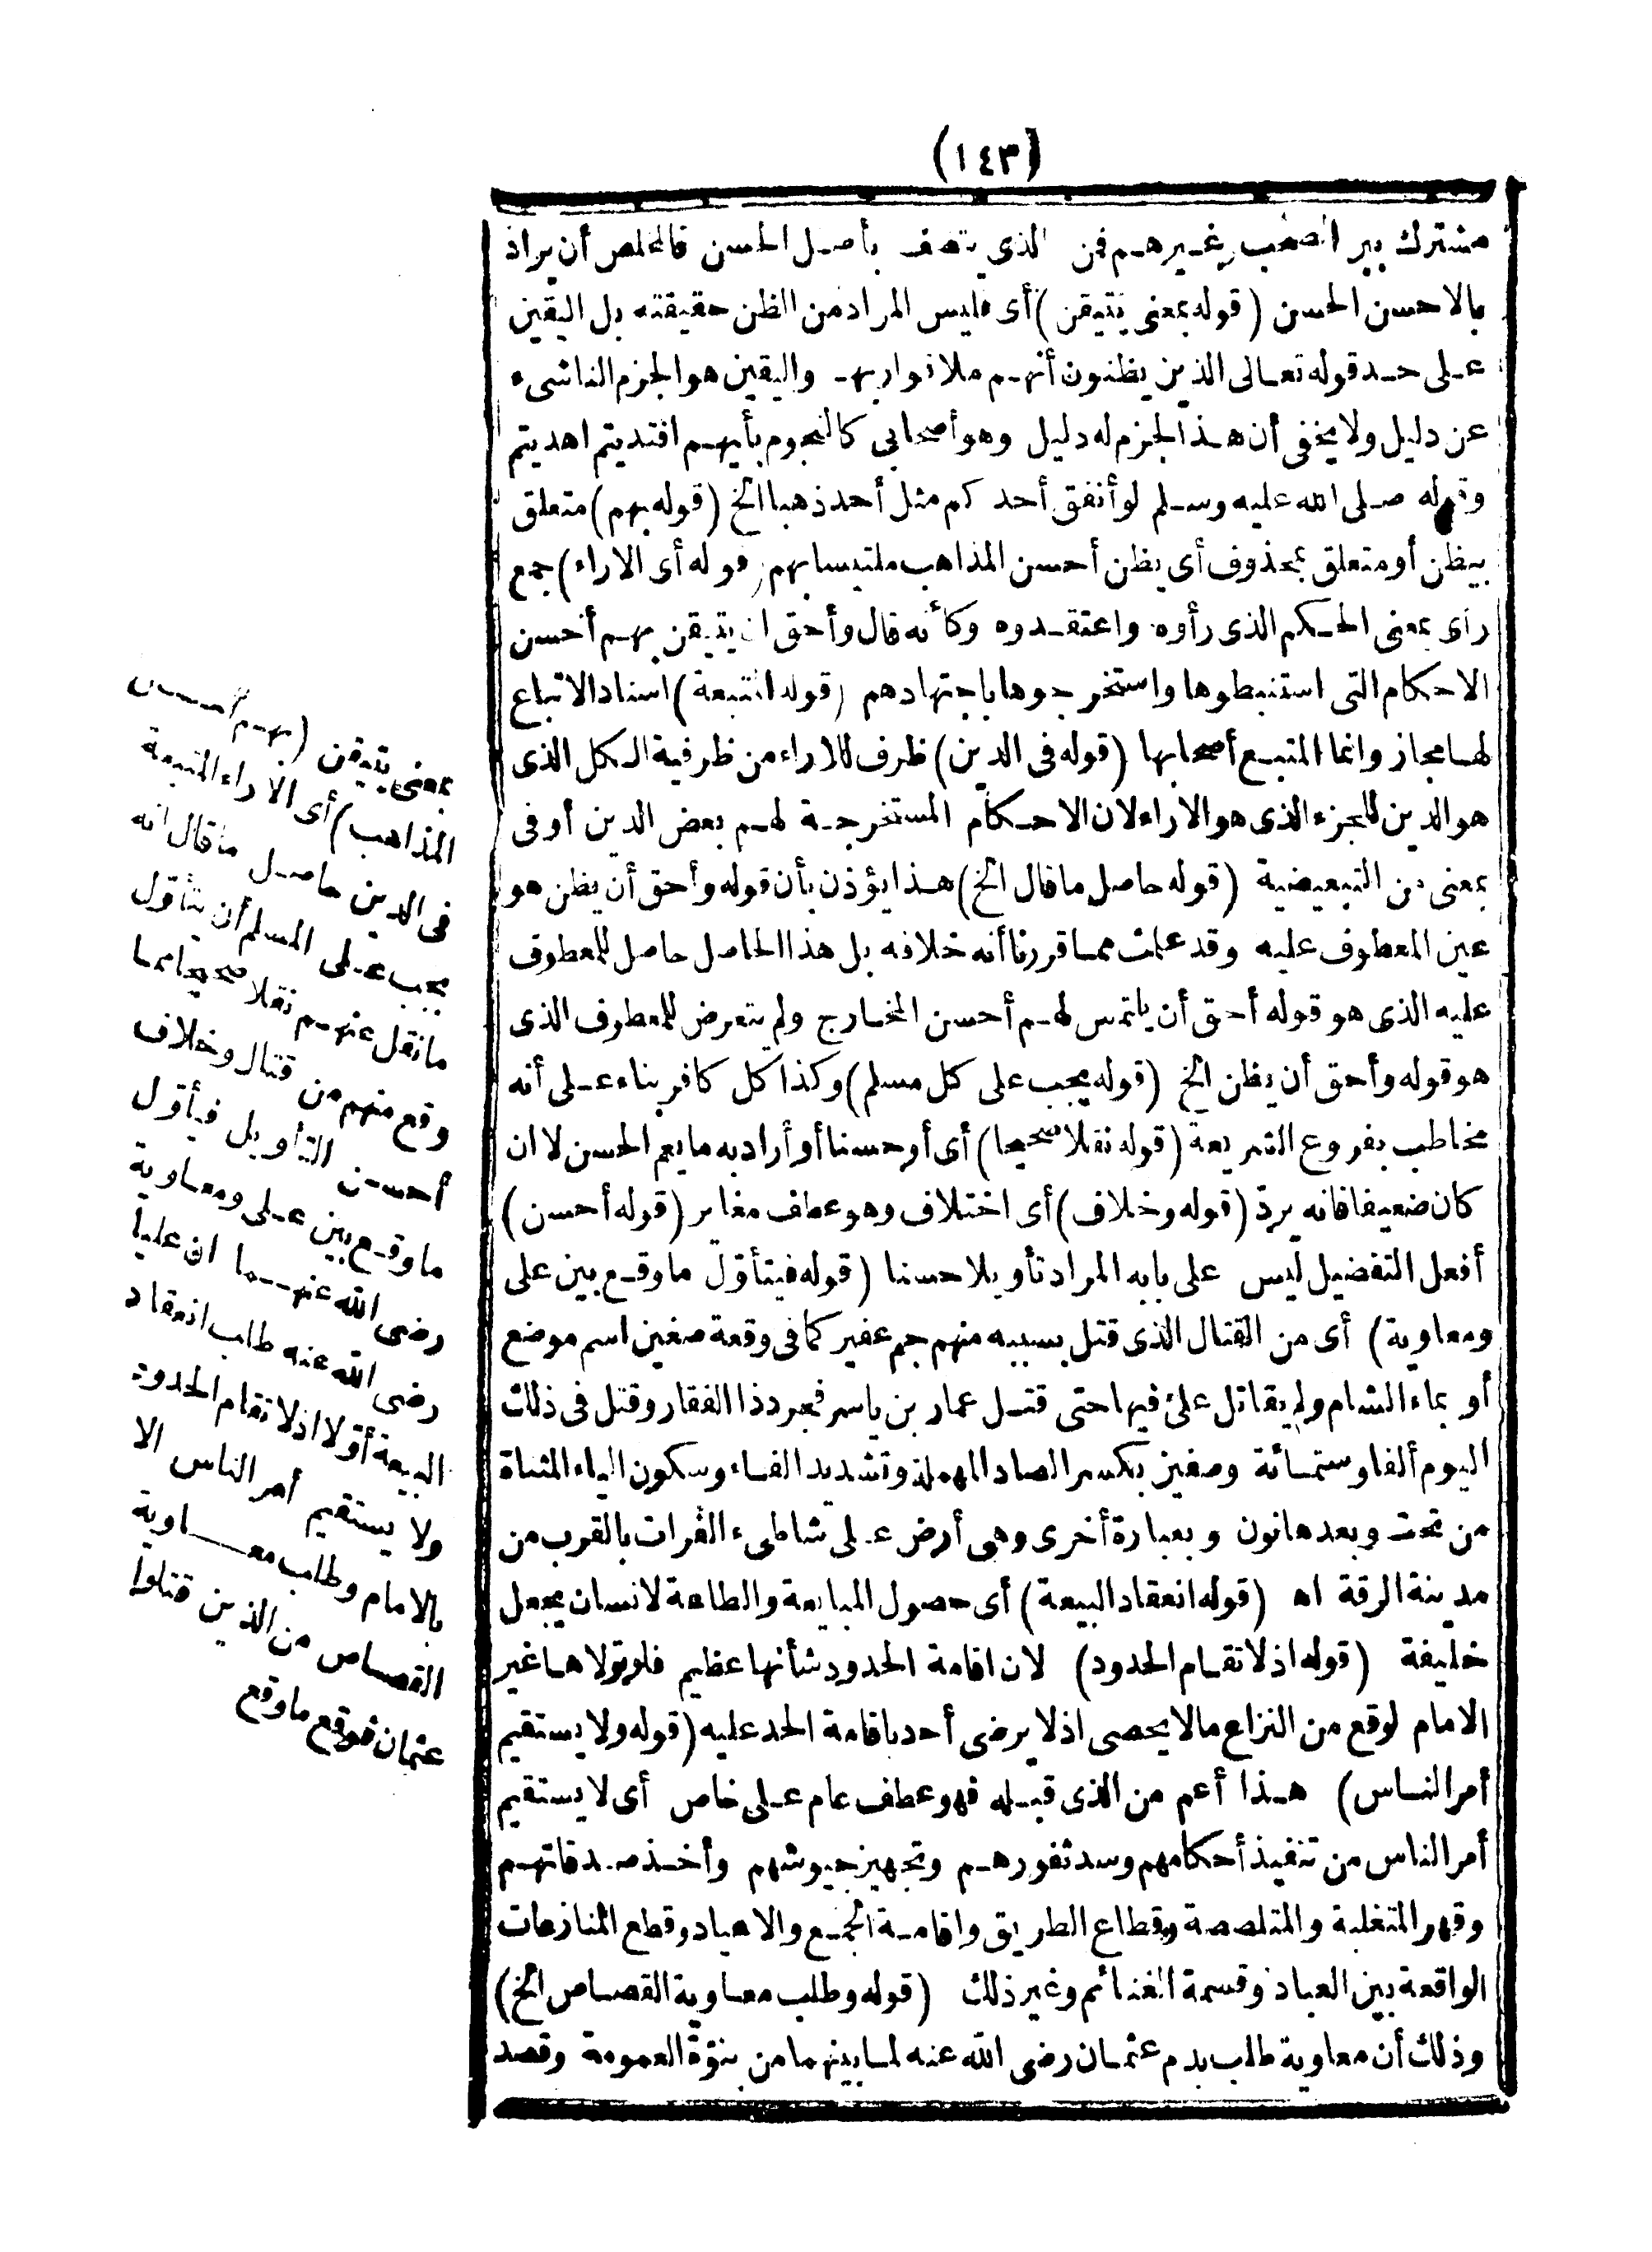 (١٤٣)
مشترك بين الصحب وغيرهم فمن الذي يتصف بأصل الحسن فالمخلص أن يراد
بالاحسن الحسن (قوله بمعنى يتيقن) أى فليس المراد من الظن حقيقته بل اليقين
على حد قوله تعالى الذين يظنون أنهم ملاقوا ربهم واليقين هو الجزم الناشىء
عن دليل ولا يخفى أن هذا الجزم له دليل وهو أصحابى كالنجوم بأيهم اقتديتم اهديتم
وقوله صلى الله عليه وسلم لو أنفق أحدكم مثل أحد ذهبا الخ (قوله بهم) متعلق
بيظن أو متعلق بمحذوف أى يظن أحسن المذاهب ملتبسا بهم (قوله أى الاراء) جمع
رأى بمعنى الحكم الذى رأوه واعتقدوه وكأنه قال وأحق ان يتيقن بهم أحسن
الاحكام التى استنبطوها واستخرجوها باجتهادهم (قوله المتبعة) اسناد الاتباع
لها مجاز وانما المتبع أصحابها (قوله فى الدين) ظرف للاراء من ظرفية الكل الذى
هو الدين للجزء الذى هو الاراء لان الاحكام المستخرجة لهم بعض الدين أو فى
بمعنى من التبعيضية (قوله حاصل ما قال الخ) هذا يؤذن بأن قوله وأحق أن يظن هو
عين المعطوف عليه وقد علمت مما قررنا أنه خلافه بل هذا الحاصل حاصل للمعطوف
عليه الذى هو قوله أحق أن يلتمس لهم أحسن المخارج ولم يتعرض للمعطوف الذى
هو قوله وأحق أن يظن الخ (قوله يجب على كل مسلم) وكذا كل كافر بناء على أنه
مخاطب بفروع الشريعة (قوله نقلا صحيحا) أى أو حسنا أو أراد به ما يعم الحسن لا ان
كان ضعيفا فانه يردّ (قوله وخلاف) أى اختلاف وهو عطف مغاير (قوله أحسن)
أفعل التفضيل ليس على بابه المراد تأويلا حسنا (قوله فيتأوّل ما وقع بين على
ومعاوية) أى من القتال الذى قتل بسببه منهم جم غفير كما فى وقعة صفين اسم موضع
أو بماء الشام ولم يقاتل علىّ فيها حتى قتل عمار بن ياسر فجرد ذا الفقار وقتل فى ذلك
اليوم ألفا وستمائة وصفين بكسر الصاد المهملة وتشديد الفاء وسكون الياء المثناة
من تحت وبعدها نون وبعبارة أخرى وهى أرض على شاطىء الفرات بالقرب من
مدينة الرقة اه (قوله انعقاد البيعة) أى حصول المبايعة والطاعة لانسان يجعل
خليفة (قوله اذ لا تقام الحدود) لان اقامة الحدود شأنها عظيم فلو تولاها غير
الامام لوقع من النزاع ما لا يحصى اذ لا يرضى أحد باقامة الحد عليه (قوله ولا يستقيم
أمر الناس) هذا أعم من الذى قبله فهو عطف عام على خاص أى لا يستقيم
أمر الناس من تنفيذ أحكامهم وسد ثغورهم وتجهيز جيوشهم وأخذ صدقاتهم
وقهر المتغلبة والمتلصصة وقطاع الطريق واقامة الجمع والاعياد وقطع المنازعات
الواقعة بين العباد وقسمة الغنائم وغير ذلك (قوله وطلب معاوية القصاص الخ)
وذلك أن معاوية طلب بدم عثمان رضى الله عنه لما بينهما من بنوّة العمومة وقصد
بمعنى يتيقن (بهم أحسن
المذاهب) أى الاراء المتبعة
فى الدين حاصل ما قال انه
يجب على المسلم أن يتأول
ما نقل عنهم نقلا صحيحا مما
وقع منهم من قتال وخلاف
أحسن التأويل فيأوّل
ما وقع بين على ومعاوية
رضى الله عنهما ان عليا
رضى الله عنه طلب انعقاد
البيعة أوّلا اذ لا تقام الحدود
ولا يستقيم أمر الناس الا
بالامام وطلب معاوية
القصاص من الذين قتلوا
عثمان فوقع ما وقع